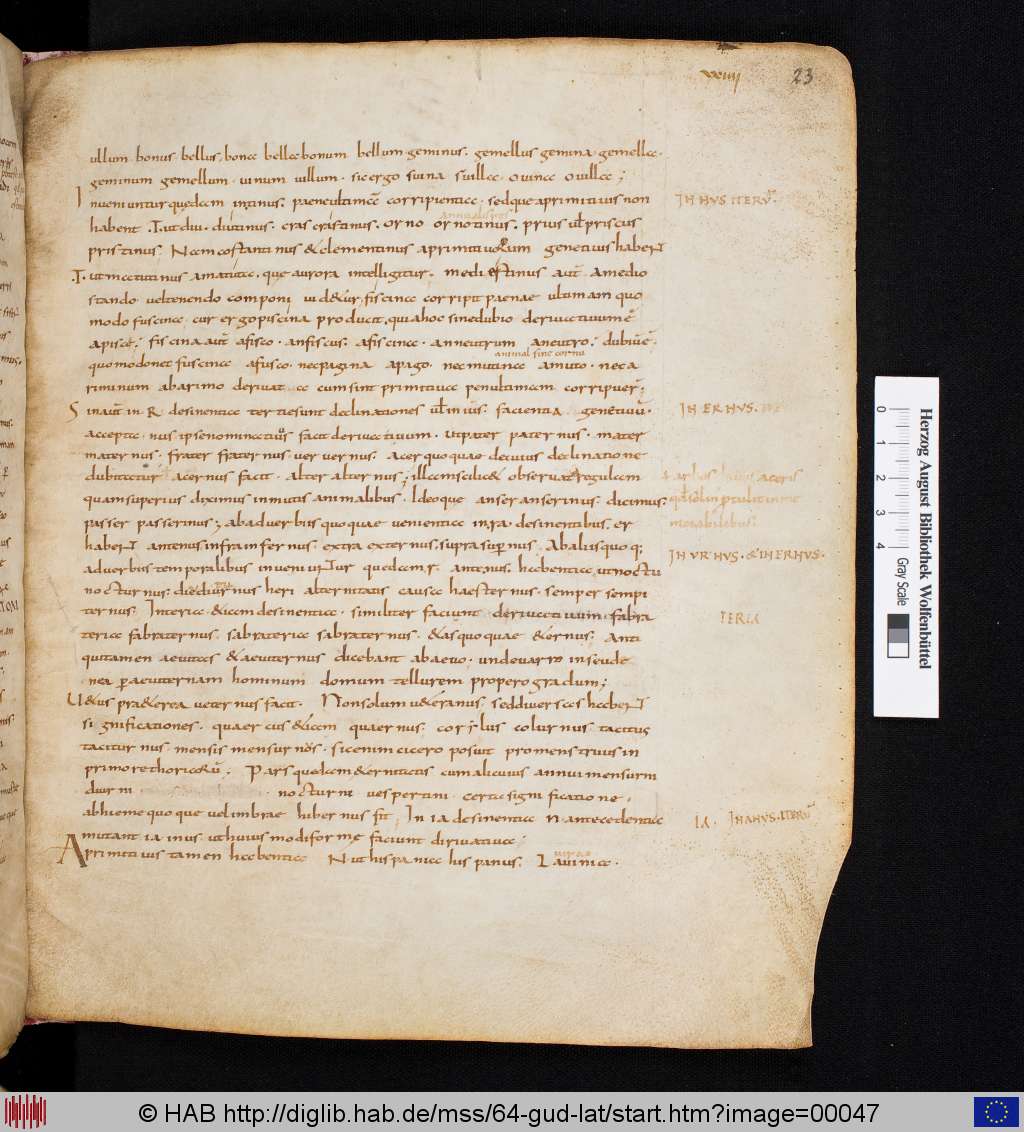 xxiiij 23
ullum · bonus · bellus, bona bella bonum bellum geminus · gemellus gemina · gemella ·
geminum gemellum · uinum uillum · sic ergo suina suilla · ouina ouilla ;
Inueniuntur quędam in tinus · paenultima corripientia · sed que a primitiuis non
habent ·I· ut diu · diutinus · cras crastinus · orno ornotinus · prius ul priscus
pristinus · Nam costantinus & clementinus a primitiuorum genetiuis habent
·I· ut matutinus a matuta · que aurora intelligitur · mediastinus aut a medio
stando uel tenendo componi uid&ur, fiscina corripit paenae ultimam quo
modo fuscina cur ergo piscina producit, quia hoc sine dubio deriuatiuum ē
a pisce · fiscina aut a fisco · anfiscus · a fiscina · an neutrum a neutro · dubiū ē ·
animal sine cornu
quomodo nec fuscina a fusco · nec pagina a pago · nec mutina a muto · nec a
riminum ab arimo deriuat · a cum sint primitiua penultimam corripuer ;
Sin aut in R desinentia tertiae sunt declinationes ul in ius · facientia genetiuū ·
accepta · nus ipse nominatiuus facit deriuatiuum · ut pater paternus · mater
maternus · frater fraternus uer uernus · acer quo quae decuius declinatione
dubitatur acernus facit · alter alternus ; illam scilic& obseruat regulam
quam superius diximus in mutis animalibus · Ideoque anser anserinus · dicimus ·
passer passerinus ; ab aduerbiis quoque uenientia in ra · desinentibus, er
habent antenus infra infernus · extra externus, supra supernus · Ab aliis quoq;
aduerbiis temporalibus inueniuntur quedam r · ante nus · habentia, ut noctu
nocturnus · die diurnus heri alternitatis causa haesternus · semper sempi
ternus · In teria &iam desinentia · similiter faciunt deriuatiuum · fabra
teria fabraternus · sabrateria sabraternus · & as quoquae &ernus · Anti
qui tamen aeuitas & aeuiternus dicebant ab aeuo · unde uarro in seude
nea paeuiternam hominum domum tellurem propero gradum ;
U&us pra&erea ueternus facit · Non solum u&eranus · sed diuersas habent
significationes · quaercus &iam quaernus · corylus colurnus tacitus
taciturnus · mensis mensurnos · sic enim cicero posuit pro menstruus in
primo rethoricorū · Pars quaedam &ernitatis cum alicuius annui mensurni
diurni nocturni uespertini · certa significatione ·
ab hieme quoque uel imbrae hibernus fit ; In ia desinentia n · antecedentia
mutant ia inus ut huius modi formę faciunt diriuatiua ;
A primitiuis tamen habentia N ut hispania hispanus · Lauinia ·
IN NVS ITERŪ ·
IN ER NVS ·
IN VR NVS · & IN ERNVS ·
TERIA
IA · IN ANVS · ITERŪ
Herzog August Bibliothek Wolfenbüttel
0 1 2 3 4
Gray Scale
© HAB http://diglib.hab.de/mss/64-gud-lat/start.htm?image=00047